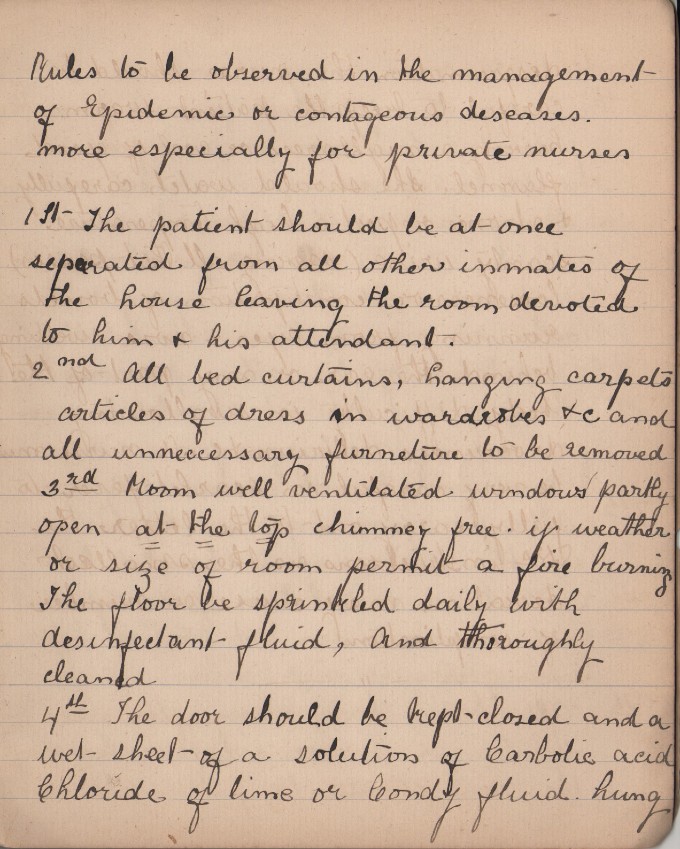 Rules to be observed in the management
of Epidemic or contageous deseases.
more especially for private nurses
1st The patient should be at once
separated from all other inmates of
the house leaving the room devoted
to him & his attendant.
2nd All bed curtains, hanging carpets
articles of dress in wardrobes &c and
all unneccessary furneture to be removed
3rd Room well ventilated windows partly
open at the top chimney free. if weather
or size of room permit a fire burning
The floor be sprinkled daily with
desinfectant fluid, and thoroughly
cleaned
4th The door should be kept closed and a
wet sheet of a solution of Carbolic acid
Chloride of lime or Condy fluid. hung